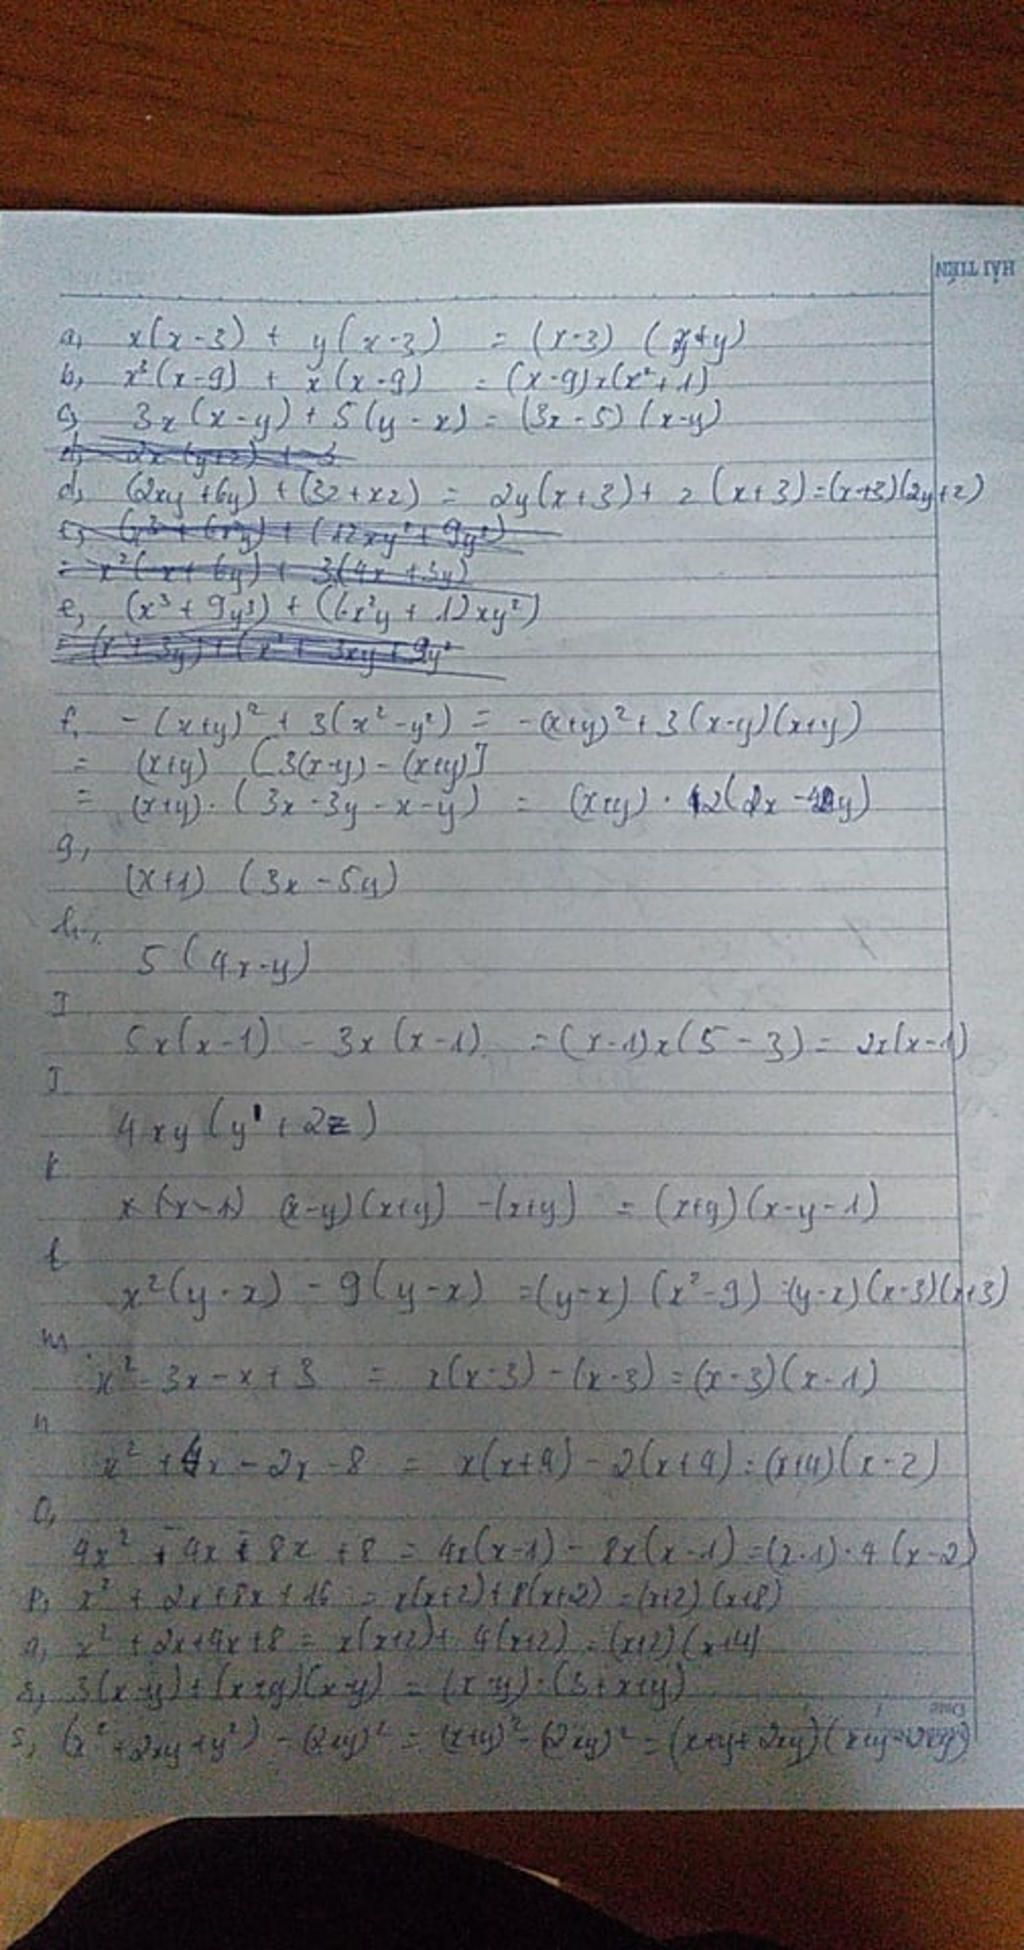 HẢI TIẾN
a, x(x-3) + y(x-3) = (x-3) (x+y)
b, x³(x-9) + x(x-9) = (x-9)x(x²+1)
c, 3x(x-y) + 5(y-x) = (3x-5) (x-y)
d, (2xy+6y) + (3z+xz) = 2y(x+3) + z(x+3) = (x+3)(2y+z)
e, (x³ + 9y³) + (6x²y + 12xy²)
f, -(x+y)² + 3(x²-y²) = -(x+y)² + 3(x-y)(x+y)
= (x+y) [3(x-y) - (x+y)]
= (x+y) . (3x-3y-x-y) = (x+y) . 2(x - 2y)
g,
(x+1) (3x-5y)
h,
5(4x-y)
I
5x(x-1) - 3x(x-1) = (x-1)x(5-3) = 2x(x-1)
J
4xy(y + 2z)
k
(x-y)(x+y) -(x+y) = (x+y)(x-y-1)
l
x²(y-x) - 9(y-x) = (y-x) (x²-9) = (y-x)(x-3)(x+3)
m
x² - 3x - x + 3 = x(x-3) - (x-3) = (x-3)(x-1)
n
x² + 4x - 2x - 8 = x(x+4) - 2(x+4) = (x+4)(x-2)
O,
4x² - 4x - 8x + 8 = 4x(x-1) - 8x(x-1) = (x-1).4(x-2)
p, x² + 2x + 8x + 16 = x(x+2) + 8(x+2) = (x+2)(x+8)
q, x² + 2x + 4x + 8 = x(x+2) + 4(x+2) = (x+2)(x+4)
3(x-y) + (x+y)(x-y) = (x-y).(3+x+y)
s, (x² + 2xy + y²) - (2xy)² = (x+y)² - (2xy)² = (x+y+2xy)(x+y-2xy)
Date